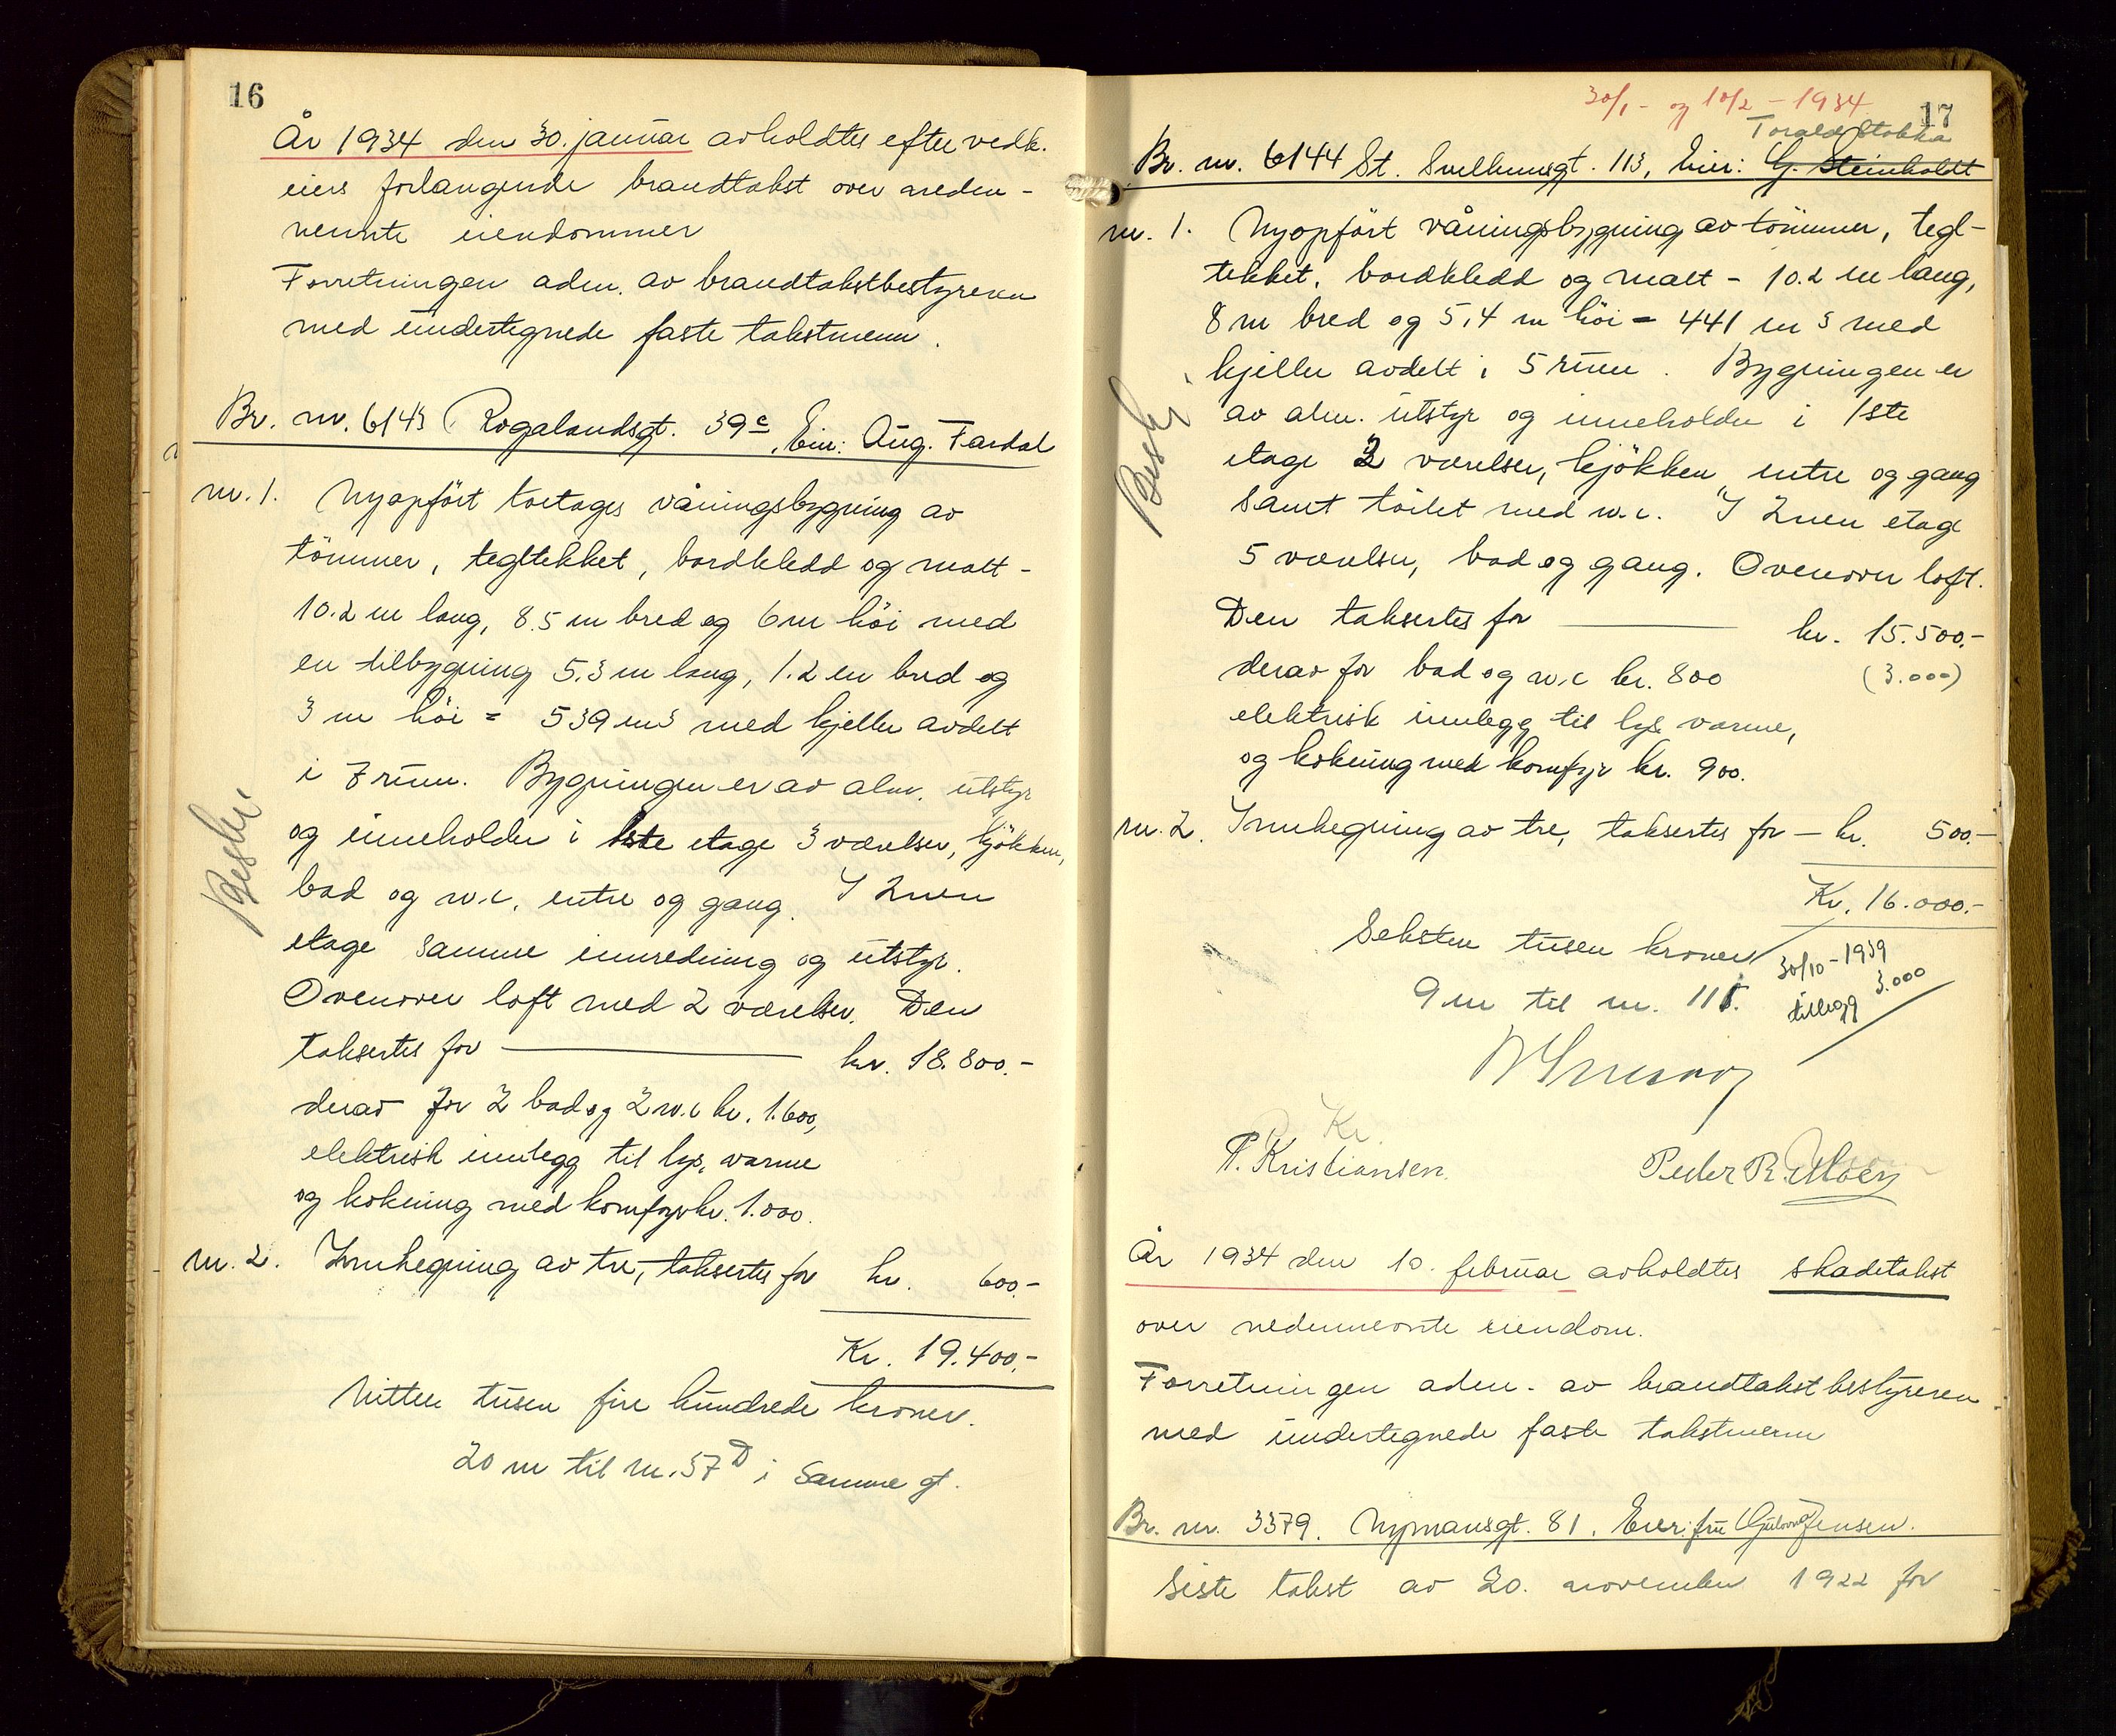 16
År 1934 den 30. januar avholdtes efter vedk.
eiers forlangende brandtakst over neden-
nevnte eiendommer
Forretningen adm. av brandtakstbestyreren
med undertegnede faste takstmenn.
Br. nr. 6143 Rogalandsgt. 39c, Eier: Aug. Fardal
nr. 1. Nyopført toetages våningsbygning av
tømmer, tegltekket, bordkledd og malt -
10.2 m lang, 8.5 m bred og 6 m høi med
en tilbygning 5.3 m lang, 1.2 m bred og
3 m høi = 539 m3 med kjeller avdelt
i 7 rum. Bygningen er av alm. utstyr
og inneholder i 1ste etage 3 værelser, kjøkken,
bad og w.c. entre og gang. I 2nen
etage samme innredning og utstyr.
Ovenover loft med 2 værelser. Den
taksertes for kr. 18.800.-
derav for 2 bad og 2 w.c kr. 1.600,
elektrisk innlegg til lys, varme
og kokning med komfyr kr. 1.000.
nr. 2. Innhegning av tre, taksertes for kr. 600.-
Kr. 19.400.-
Nitten tusen fire hundrede kroner.
20 m til nr. 37D i samme gt.
Besk.
30/1 - og 10/2 - 1934
17
Torald Stokka
Br. nr. 6144 St. Svithunsgt. 113, Eier: G. Steinholdt
nr. 1. Nyopført våningsbygning av tømmer, tegl-
tekket, bordkledd og malt - 10.2 m lang,
8 m bred og 5,4 m høi = 441 m3 med
kjeller avdelt i 5 rum. Bygningen er
av alm. utstyr og inneholder i 1ste
etage 2 værelser, kjøkken, entre og gang
samt toilet med w.c. I 2nen etage
5 værelser, bad og gang. Ovenover loft.
Den taksertes for kr. 15.500.-
derav for bad og w.c kr. 800 (3.000)
elektrisk innlegg til lys varme,
og kokning med komfyr kr. 900.
nr. 2. Innhegning av tre, taksertes for - kr. 500.-
Kr. 16.000.-
Seksten tusen kroner
30/10 - 1939
tillegg 3.000
9 m til nr. 115.
Besk.
Kr.
P. Kristiansen. Peder R. Moen
År 1934 den 10. februar avholdtes skadetakst
over nedennevnte eiendom.
Forretningen adm. av brandtakstbestyreren
med undertegnede faste takstmenn
Br. nr. 3379. Nymansgt. 81. Eier: fru Gulovne Jensen.
Siste takst av 20. november 1922 for